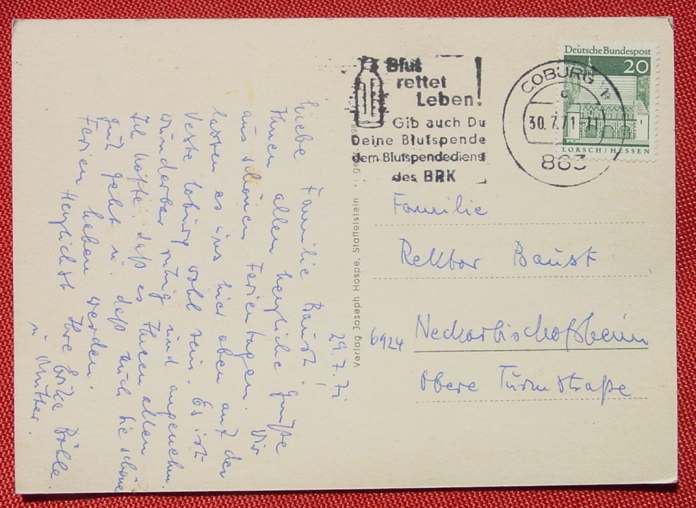 29.7.71
Liebe Familie Baust!
Ihnen allen herzliche Grüße
aus schönen Ferientagen. Wir
lassen es uns hier oben auf der
Veste Coburg wohl sein. Es ist
wunderbar ruhig und angenehm.
Ich hoffe, daß es Ihnen allen
gut geht u. daß auch Sie schöne
Ferien haben werden.
Herzlichst Ihre Erika Bölle
u. Mutter.
Verlag Joseph Hospe, Staffelstein
Blut
rettet
Leben!
Gib auch Du
Deine Blutspende
dem Blutspendedienst
des BRK
COBURG 1
c
30.7.71-11
863
Deutsche Bundespost
20
LORSCH/HESSEN
Familie
Rektor Baust
6924 Neckarbischofsheim
Obere Turmstraße